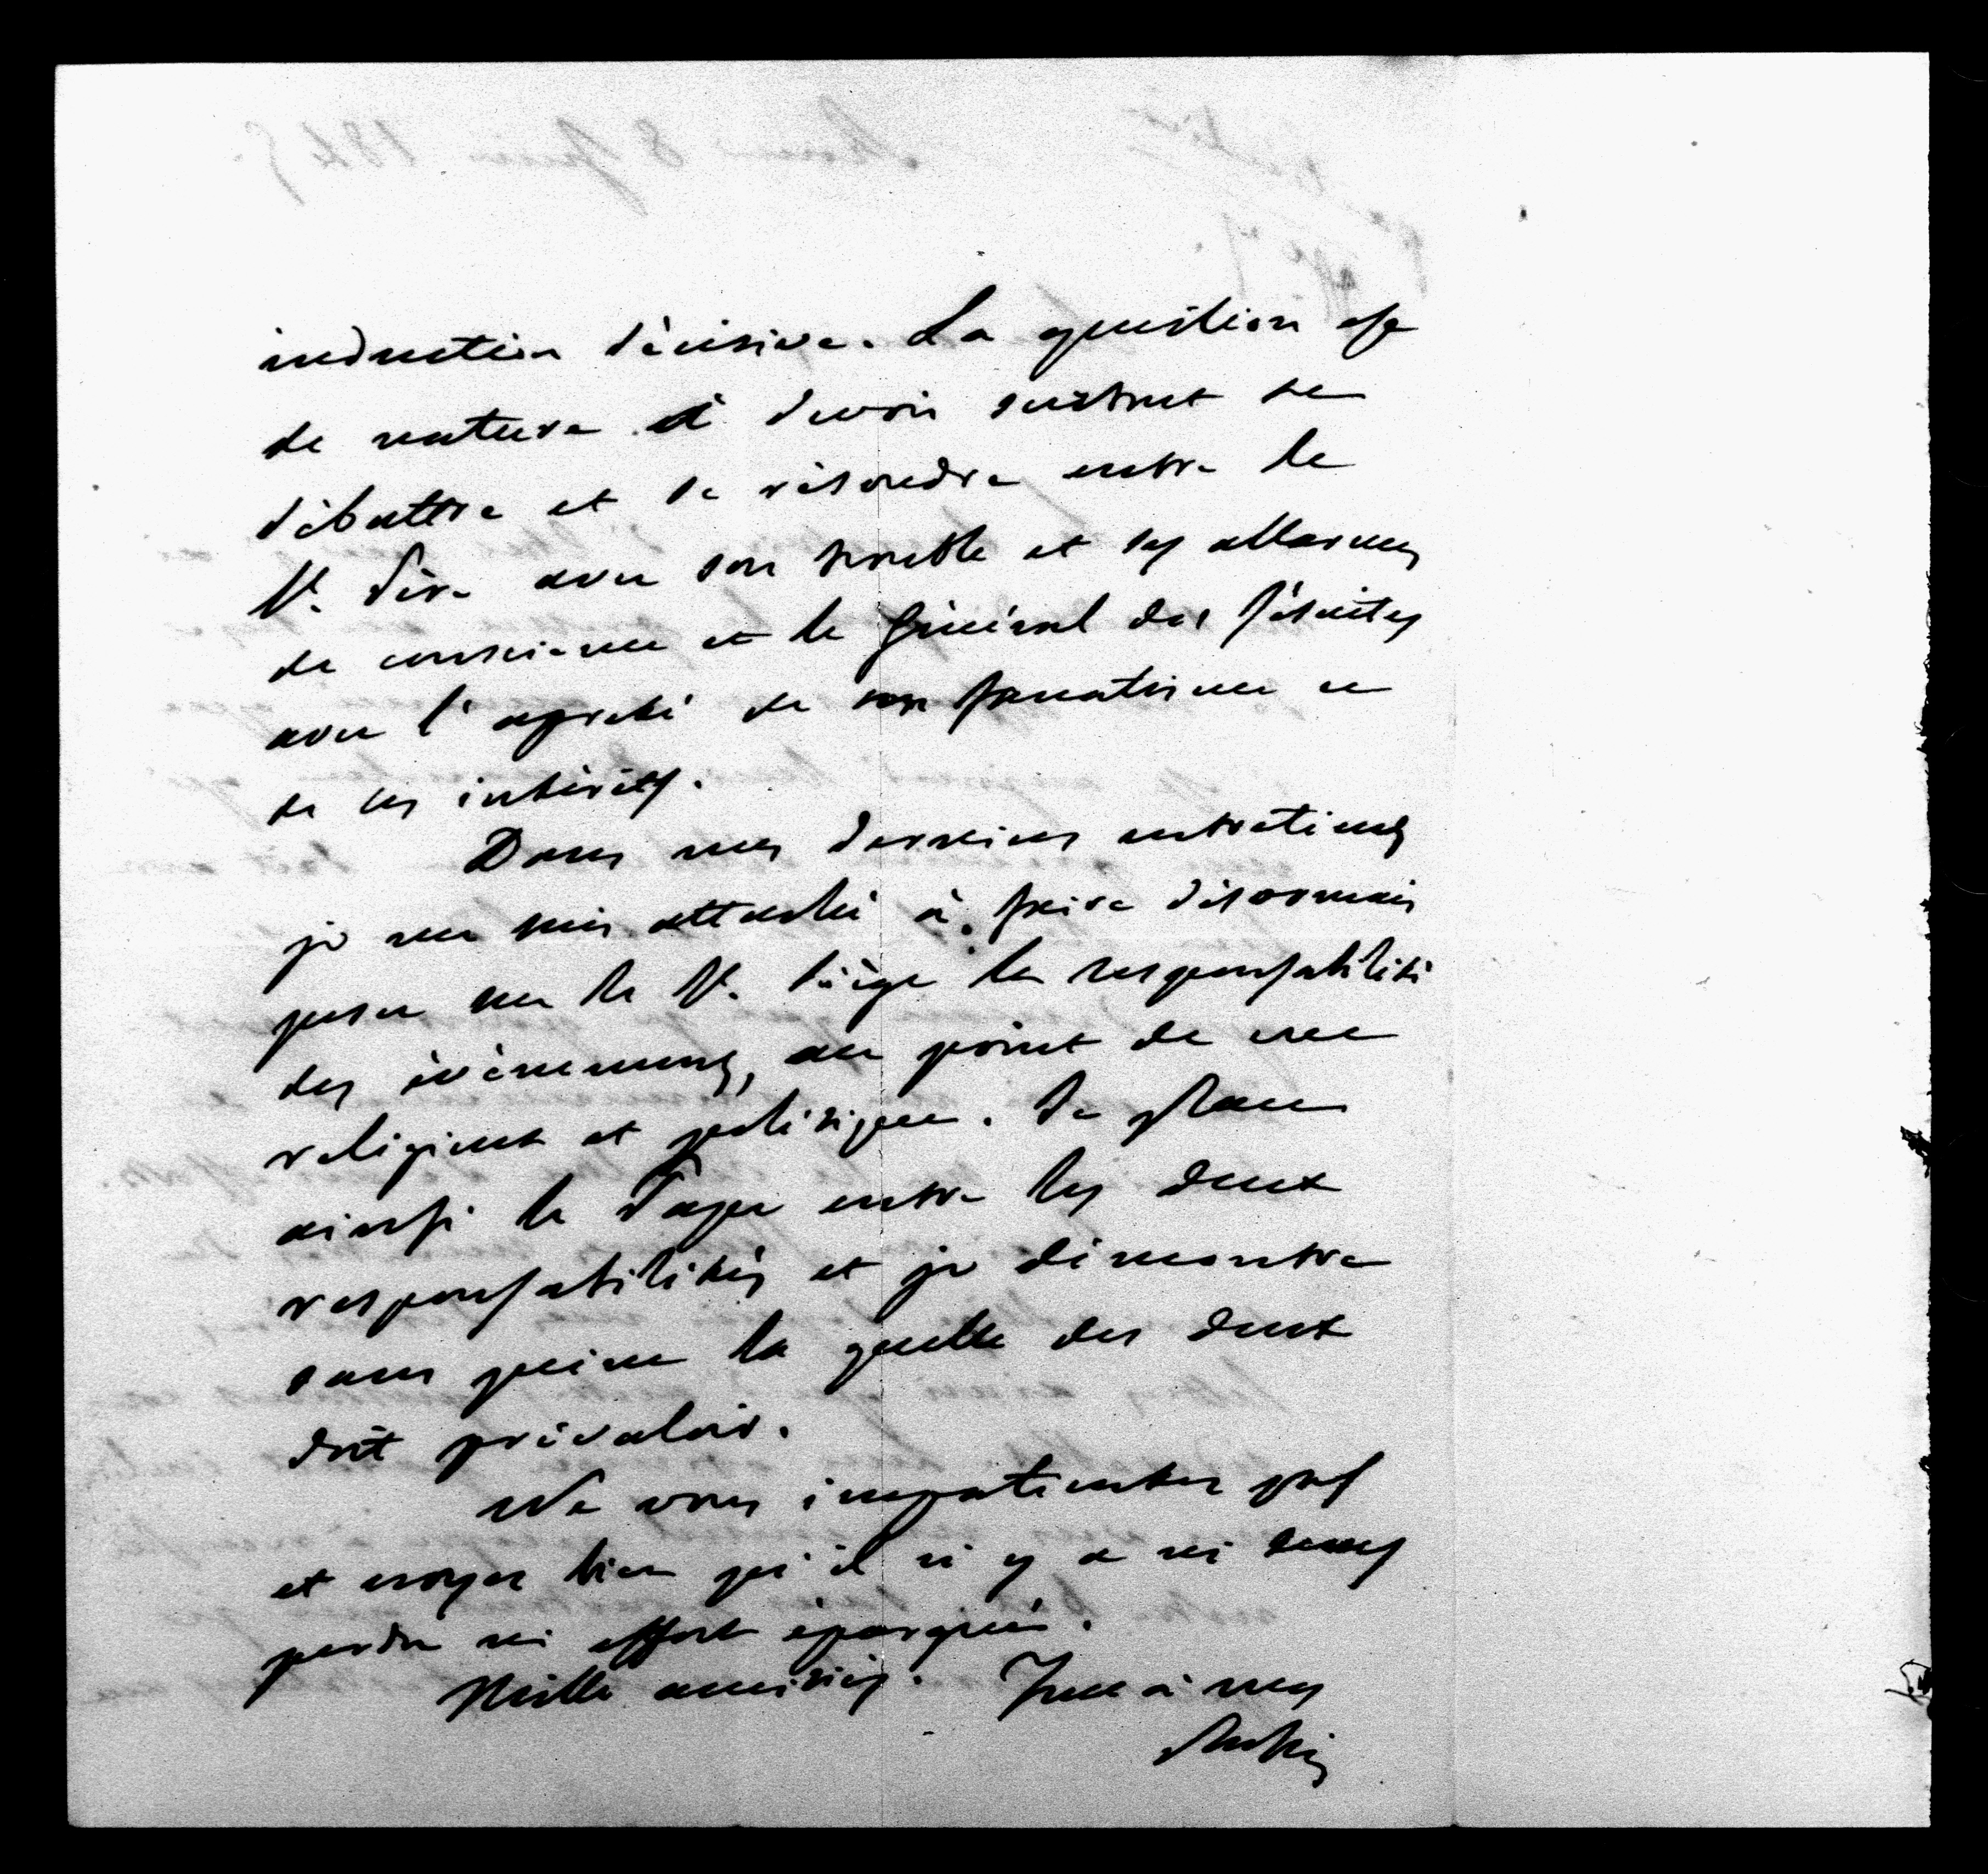 induction décisive. La question est
de nature à devoir surtout se
débattre et se résoudre entre le
St. Père avec son trouble et ses allarmes
de conscience et le Général des Jésuites
avec l'apreté de son fanatisme et
de ses intérêts.
Dans mes derniers entretiens
je me suis attaché à faire désormais
peser sur le St. Siège la responsabilité
des évènemens, au point de vue
religieux et politique. Je place
ainsi le Pape entre les deux
responsabilités et je démontre
sans peine la quelle des deux
doit prévaloir.
Ne vous impatientez pas
et croyez bien qu'il n'y a ni temps
perdu ni effort épargné.
Mille amitiés. Tout à vous